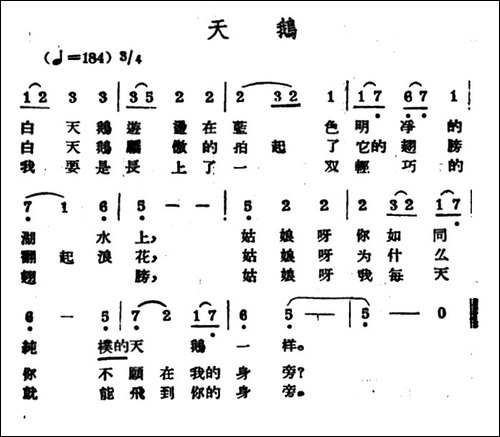 天 鹅
(♩=184) 3/4
1 2 3 3 | 3 5 2 2 | 2 3 2 1 | 1 7 6 7 1 |
白 天 鹅 遊 盪 在 藍 色 明 净 的
白 天 鹅 驕 傲 的 拍 起 了 它的 翅 膀
我 要 是 長 上 了 一 双 輕 巧 的
7 1 6 | 5 — — | 5 2 2 | 2 3 2 1 7 |
湖 水 上, 姑 娘 呀 你 如 同
翻 起 浪 花, 姑 娘 呀 为 什 么
翅 膀, 姑 娘 呀 我 每 天
6 — 5 | 7 2 1 7 | 6 5 — | 5 — 0 ‖
純 樸的 天 鹅 一 样。
你 不 願 在 我的 身 旁?
就 能 飛 到 你的 身 旁。